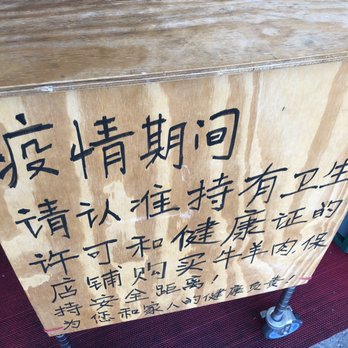 疫情期间
请认准持有卫生
许可和健康证的
店铺购买牛羊肉,保
持安全距离!
为您和家人的健康负责!